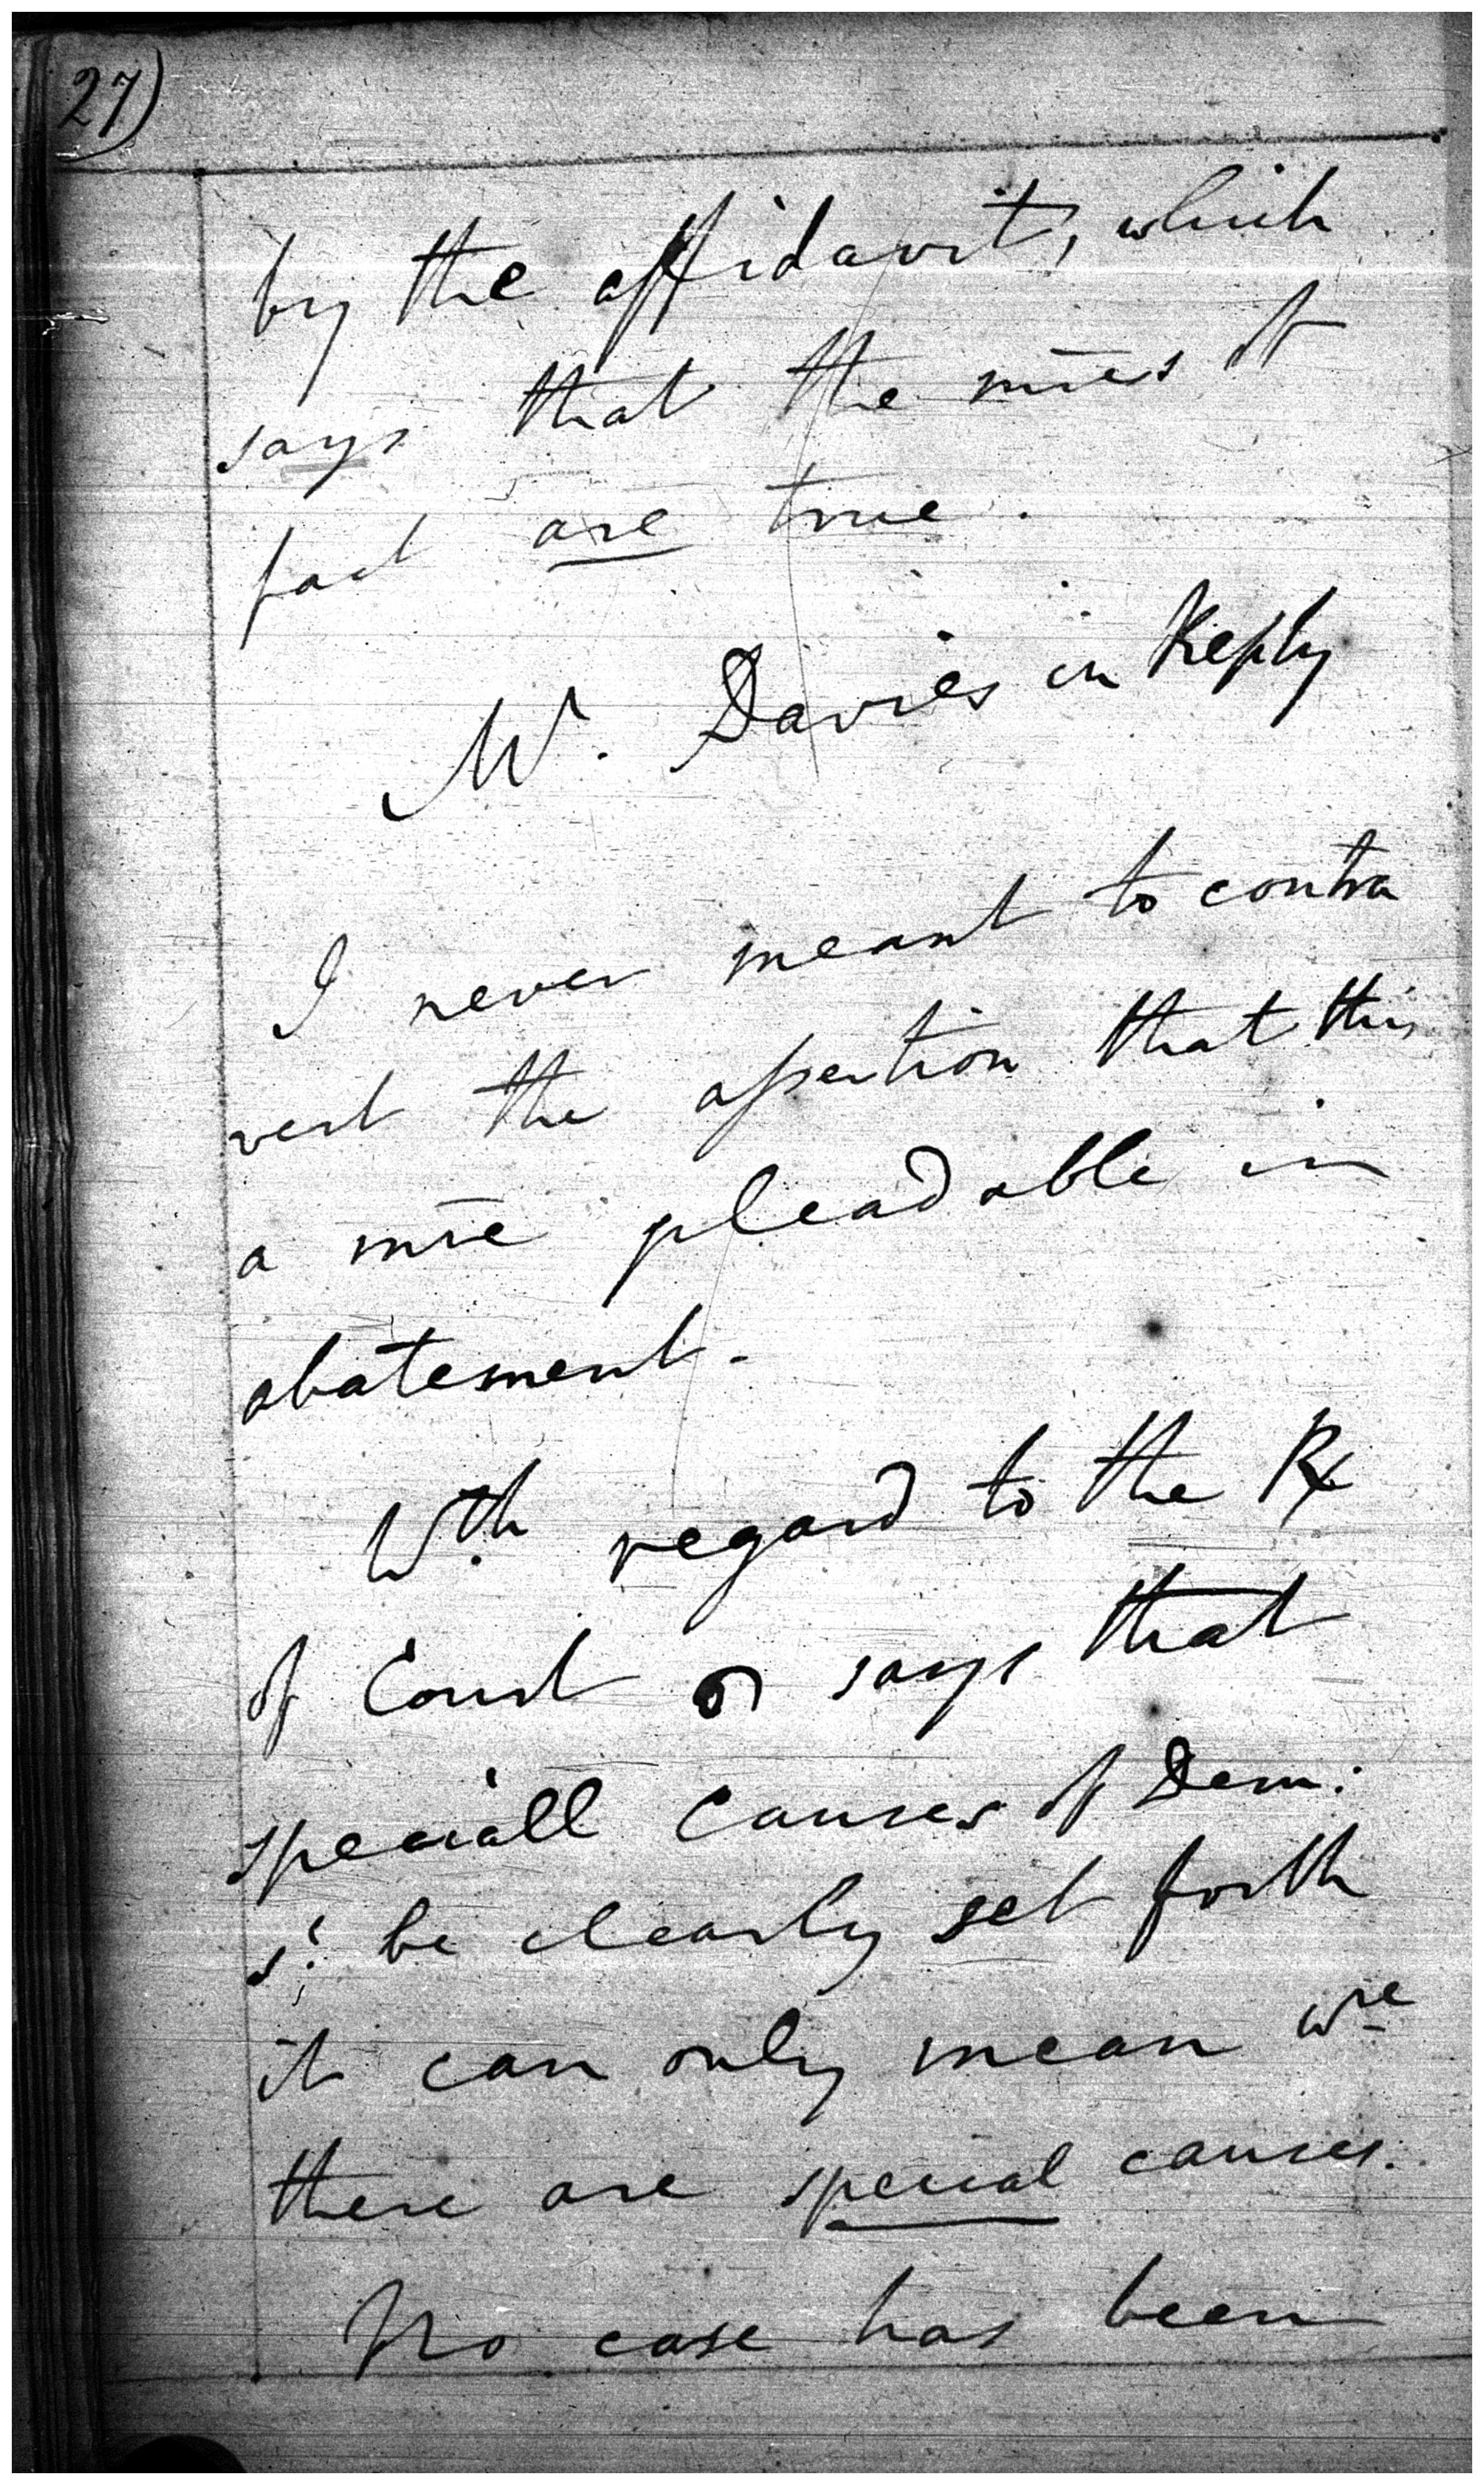 27)
by the affidavit, which
says that the mres of
fact are true.
Mr. Davies in Reply
I never meant to contra
vert the assertion that this
a mre pleadable in
abatement.
Wth regard to the R
of Court says that
speciall causes of Dem:
sd. be clearly set forth
it can only mean wre
there are special causes.
No case has been